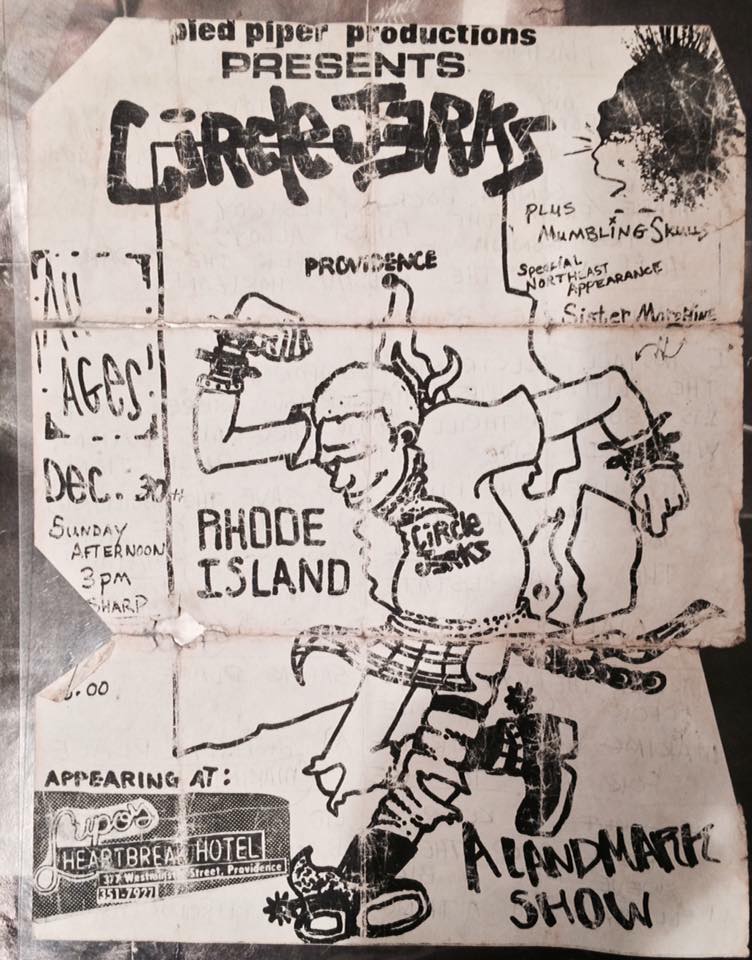 pied piper productions
PRESENTS
CiRcle JERKS
PLUS
MUMBLING SKULLS
SPECIAL
NORTHEAST
APPEARANCE
Sister Morphine
PROVIDENCE
All
AGes
Dec. 30TH
SUNDAY
AFTERNOON
3pm
SHARP
.00
RHODE
ISLAND
CiRcle
JeRKS
APPEARING AT:
Lupo's
HEARTBREAK HOTEL
377 Westminster Street, Providence
351-7927
A LANDMARK
SHOW